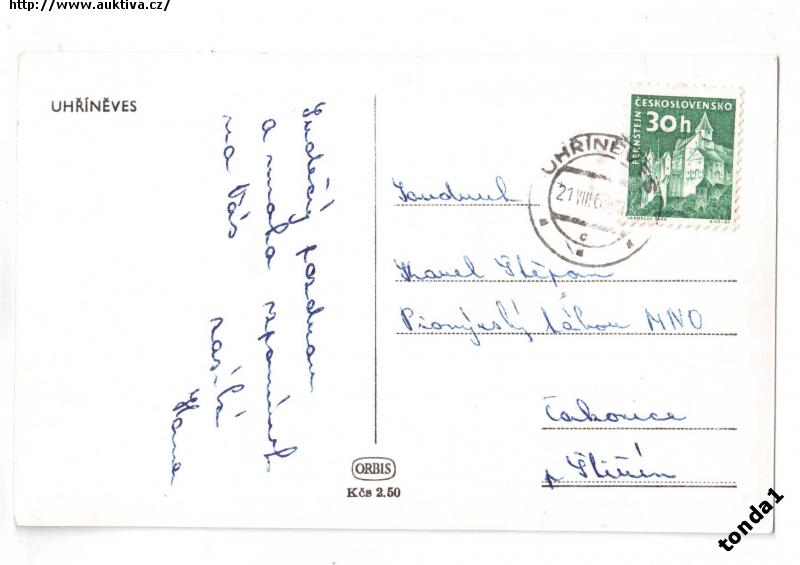 http://www.auktiva.cz/
UHŘÍNĚVES
Srdečný pozdrav
a mnoho vzpomínek
na Vás
zasílá
Hana
ORBIS
Kčs 2.50
ČESKOSLOVENSKO
PERNŠTEJN
30h
UHŘÍNĚVES
21 VIII 6
c
Soudruh
Karel Štěpán
Pionýrský tábor MNO
Čakovice
p. Štiřín
tonda1